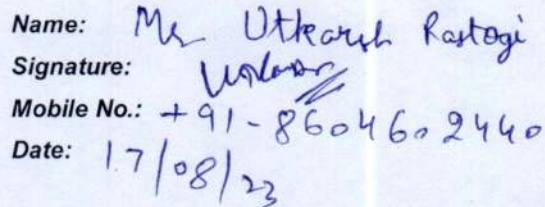 Name: Mr Utkarsh Rastogi
Signature:
Mobile No.: +91-8604602440
Date: 17/08/23